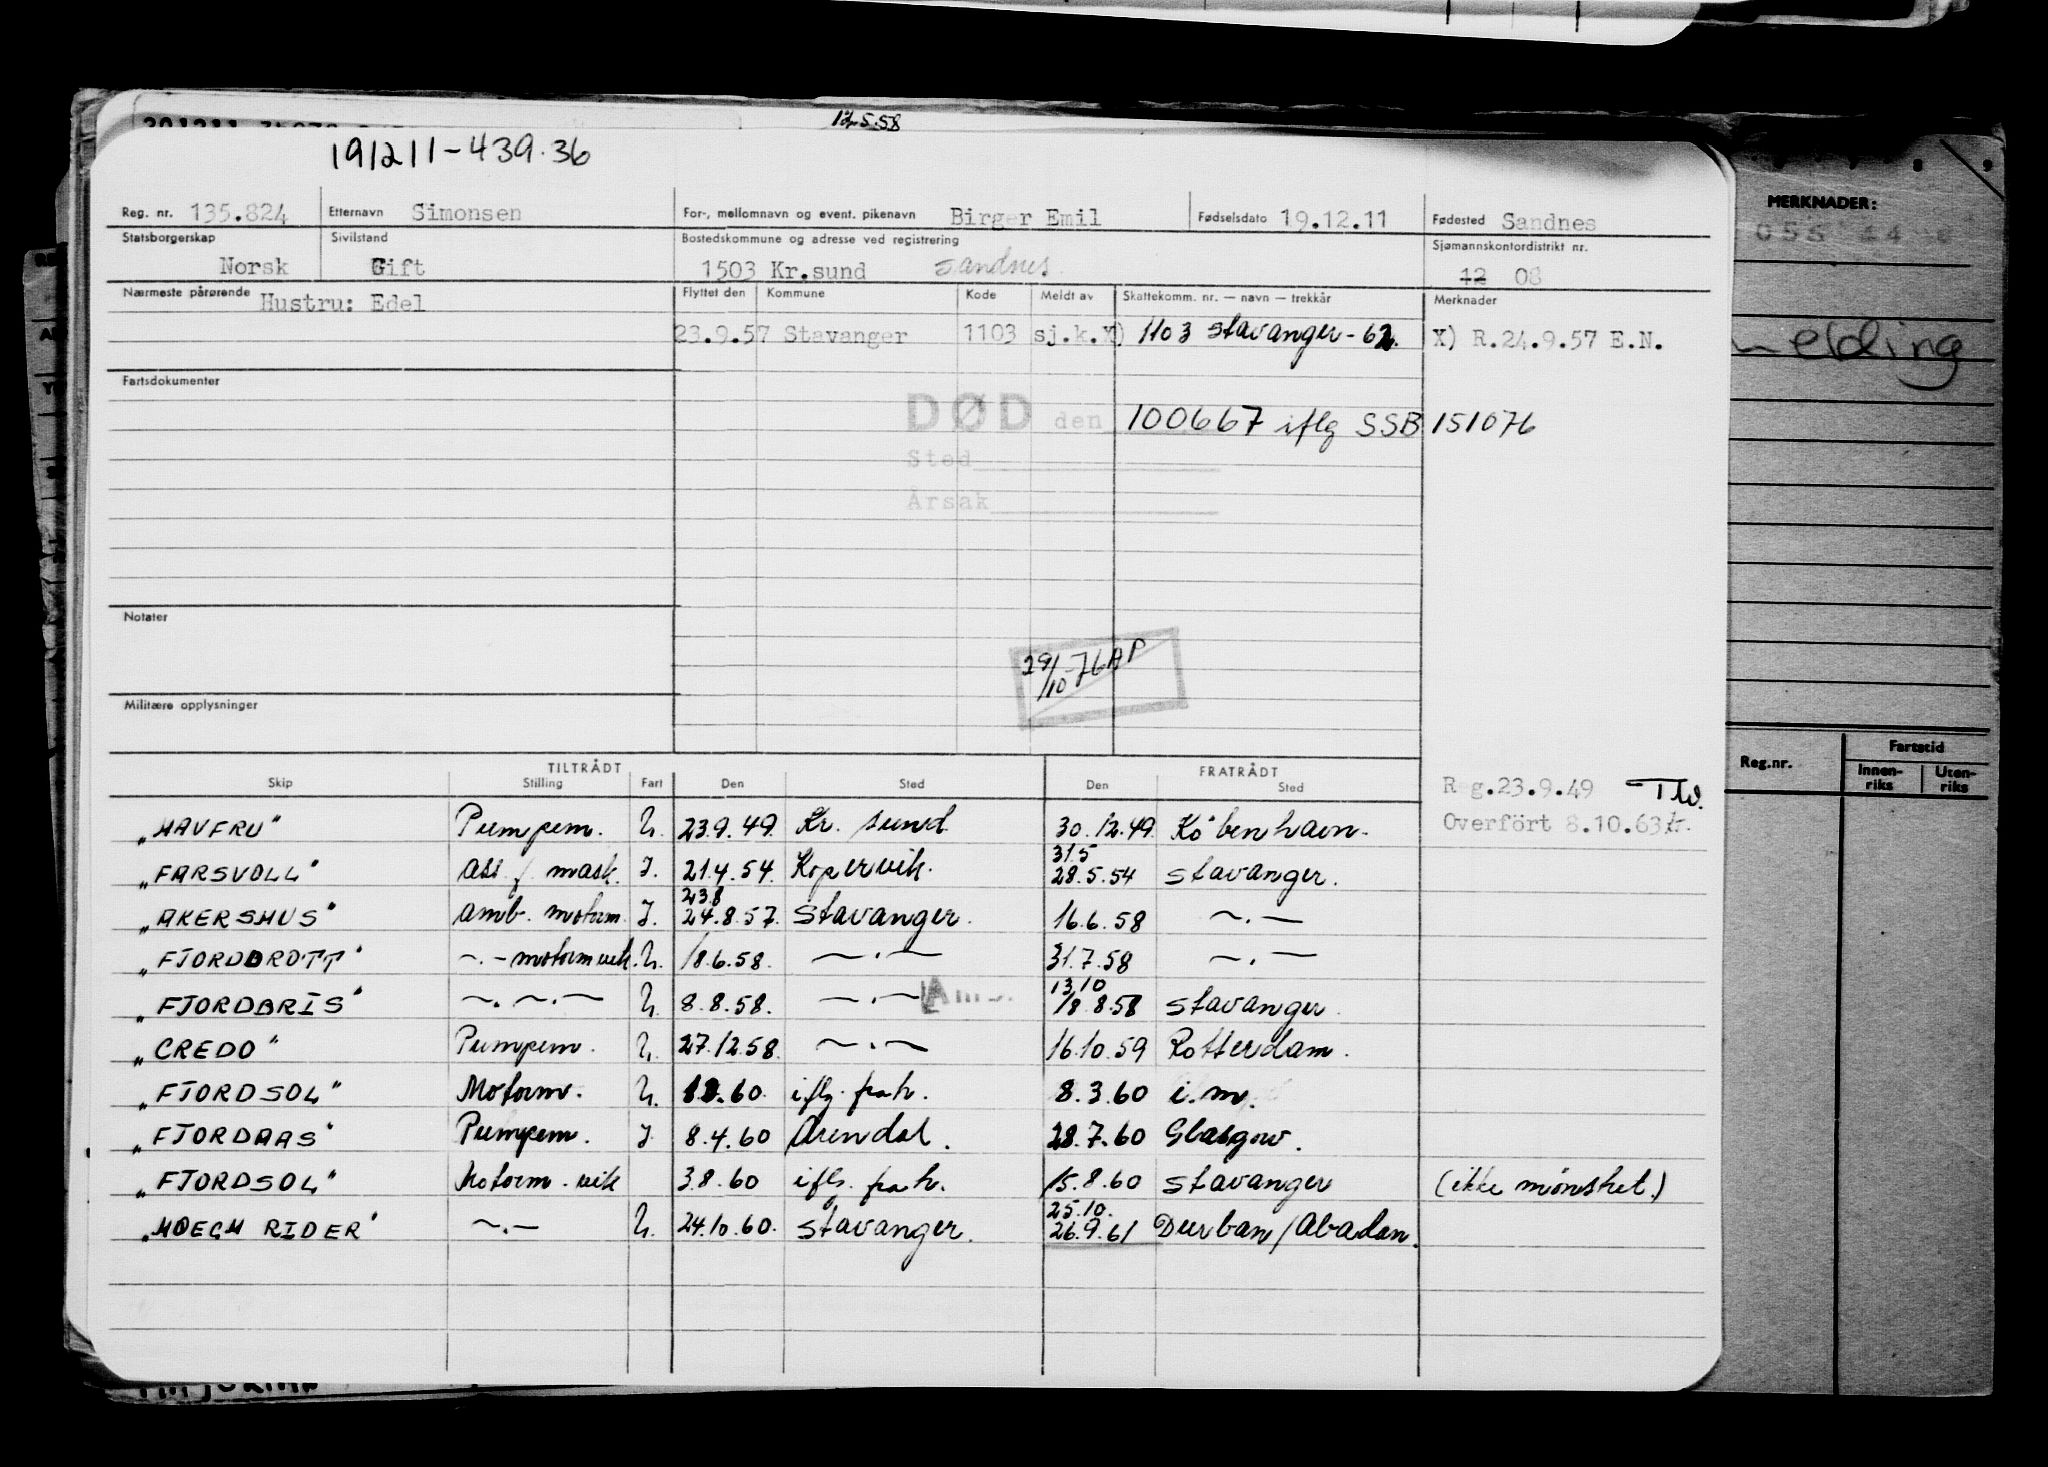 12.5.58
191211-439.36
Reg. nr. 135.824 Etternavn Simonsen For-, mellomnavn og event. pikenavn Birger Emil Fødselsdato 19.12.11 Fødested Sandnes
Statsborgerskap Norsk Sivilstand Gift Bostedskommune og adresse ved registrering 1503 Kr.sund Sandnes Sjømannskontordistrikt nr. 12 08
Nærmeste pårørende Hustru: Edel Flyttet den Kommune Kode Meldt av Skattekomm. nr. — navn — trekkår Merknader
23.9.57 Stavanger 1103 sj.k.X) 1103 Stavanger-62. X) R.24.9.57 E.N.
Fartsdokumenter
DØD den 100667 iflg SSB 151076
Sted
Årsak
Notater
29/10-76 AP
Militære opplysninger
TILTRÅDT FRATRÅDT
Skip Stilling Fart Den Sted Den Sted
Reg.23.9.49
Overført 8.10.63
"HAVFRU" Pumpem. U. 23.9.49. Kr. sund 30.12.49. København.
31.5
"FARSVOLL" ass. f. mask. I. 21.4.54. Kopervik. 28.5.54 Stavanger.
23.8
"AKERSHUS" amb. motorm. I. 24.8.57. Stavanger. 16.6.58 ~.—
"FJORDDROTT" ~.— motorm vik. U. 18.6.58. —.— 31.7.58 ~.—
13.10
"FJORDBRIS" ~.~.— U. 8.8.58. —.— 18.8.58 Stavanger
"CREDO" Pumpem. U. 27.12.58. ~.— 16.10.59 Rotterdam.
"FJORDSOL" Motorm. U. .60. iflg. frah. 8.3.60 i.m.
"FJORDAAS" Pumpem. I 8.4.60 Arendal. 28.7.60 Glasgow.
"FJORDSOL" Motorm. vik 3.8.60 iflg. frah. 15.8.60 Stavanger (ikke mønstret.)
25.10.
"HØEGH RIDER" ~.— U. 24.10.60. Stavanger. 26.9.61 Durban/Abadan.
8 9
MERKNADER:
055 44
elding
Reg.nr. Fartstid
Innen-riks Uten-riks